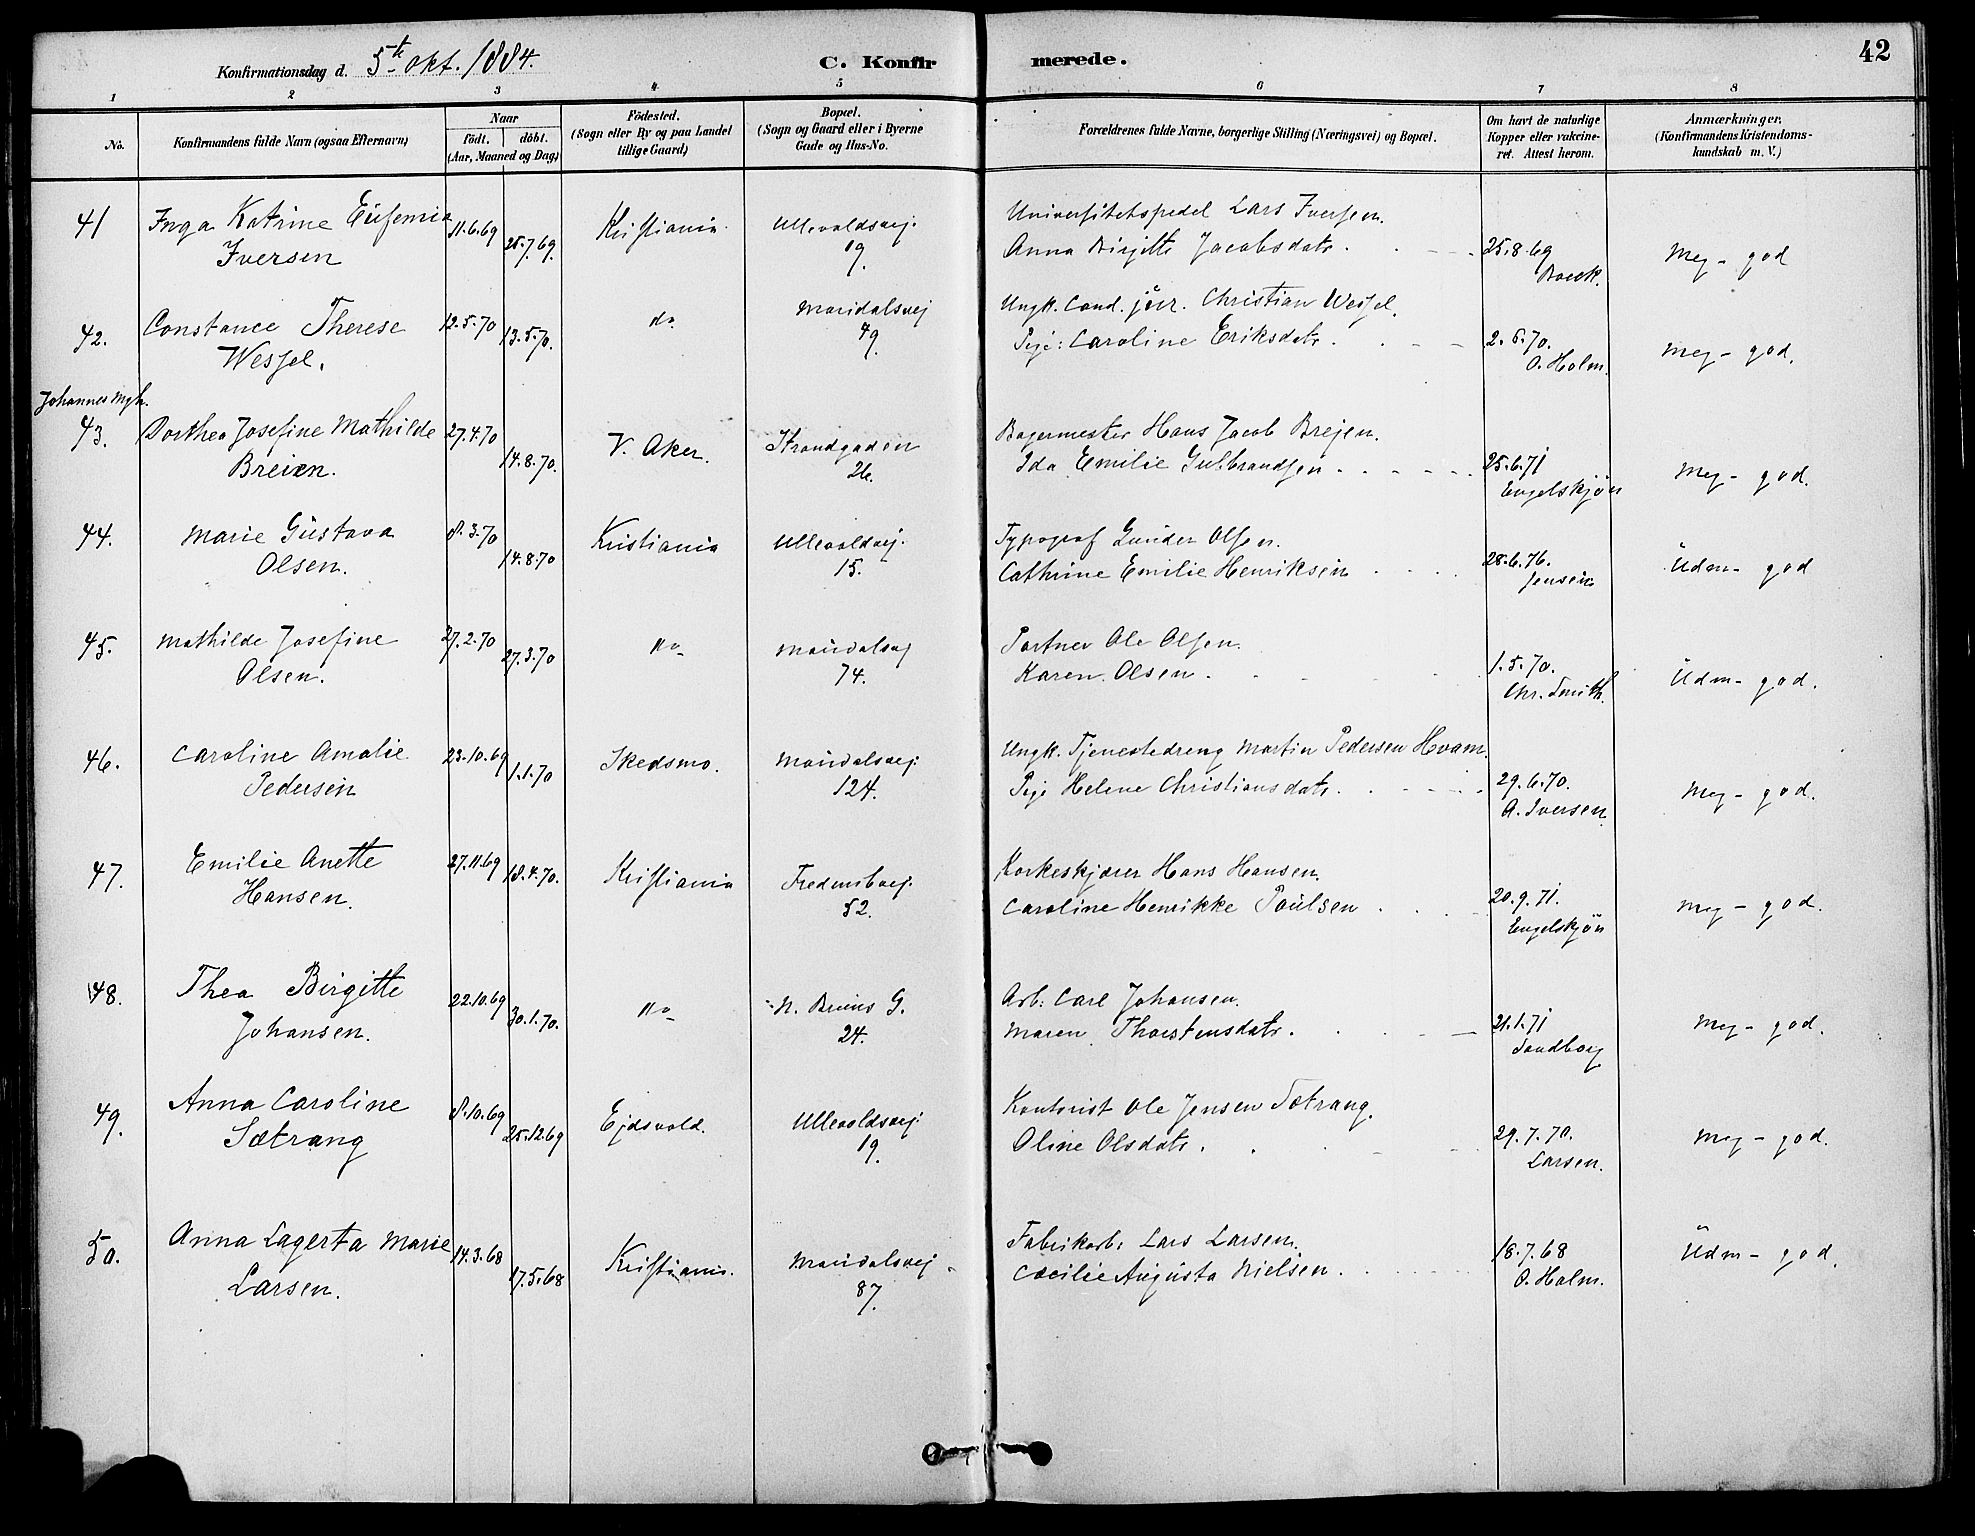 Konfirmationsdag d. 5te Okt. 1884. C. Konfirmerede. 42
1 2 3 4 5 6 7 8
No. Konfirmandens fulde Navn (ogsaa Efternavn) Naar födt. döbt. (Aar, Maaned og Dag) Födested. (Sogn eller By og paa Landet tillige Gaard) Bopæl. (Sogn og Gaard eller i Byerne Gade og Hus-No. Forældrenes fulde Navne, borgerlige Stilling (Næringsvei) og Bopæl. Om havt de naturlige Kopper eller vakcineret. Attest herom. Anmærkninger. (Konfirmandens Kristendomskundskab m. V.)
41 Inga Katrine Eufemia 11.6.69 25.7.69. Kristiania. Ullevoldsvej. Universitetspedel Lars Iversen.
Iversen 19. Anna Birgitte Jacobsdatr. 25.8.69 Boeck. Meg - god
42. Constance Therese 12.5.70 13.5.70. do Maridalsvej Ungk. Cand. jur. Christian Wessel.
Wessel. 49. Pige: Caroline Eriksdatr. 2.6.70. O. Holm. Meg - god.
Johannes Mgh.
43. Dorthea Josefine Mathilde 27.4.70 14.8.70. V. Aker. Strandgaden Bagermester Hans Jacob Brejen.
Breien. 26. Ida Emilie Gulbrandsen 25.6.71 Engelskjön Meg - god.
44. Marie Gustava 8.3.70 14.8.70 Kristiania Ullevoldsvej. Typograf Gunder Olsen.
Olsen. 15. Cathrine Emilie Henriksen 28.6.76. Jensen Udm - god
45. Mathilde Josefine 27.2.70 27.3.70 do Maridalsvej Portner Ole Olsen.
Olsen. 74. Karen Olsen. 1.5.70. Chr. Smith. Udm - god.
46. Caroline Amalie 23.10.69 1.1.70 Skedsmo. Maridalsvej. Ungk. Tjenestedreng Martin Pedersen Hvam.
Pedersen 124. Pige Helene Christiansdatr. 29.6.70. A. Iversen. Meg - god.
47. Emilie Anette 27.11.69 18.4.70. Kristiania Fredensbvej. Korkeskjærer Hans Hansen.
Hansen. 52. Caroline Henrikke Paulsen 20.9.71. Engelskjön Meg - god.
48. Thea Birgitte 22.10.69 30.1.70. do N. Bruns G. Arb: Carl Johansen.
Johansen. 24. Maren Thorstensdatr. 21.1.71 Sandborg Meg - god.
49. Anna Caroline 8.10.69 25.12.69 Ejdsvold. Ullevoldsvej. Kontorist Ole Jensen Sætrang.
Sætrang 19. Oline Olsdatr. 29.7.70. Larsen. Meg - god.
50. Anna Lagerta Marie 14.3.68 17.5.68 Kristiania. Maridalsvej Fabrikarb: Lars Larsen.
Larsen. 87. Cæcilie Augusta Nielsen. 18.7.68 O. Holm. Udm - god.